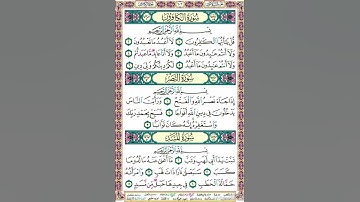 سُورَةُ الكَافِرُونَ
بِسْمِ اللَّهِ الرَّحْمَٰنِ الرَّحِيمِ
قُلْ يَا أَيُّهَا الْكَافِرُونَ ١ لَا أَعْبُدُ مَا تَعْبُدُونَ ٢
وَلَا أَنْتُمْ عَابِدُونَ مَا أَعْبُدُ ٣ وَلَا أَنَا عَابِدٌ مَا عَبَدْتُمْ ٤
وَلَا أَنْتُمْ عَابِدُونَ مَا أَعْبُدُ ٥ لَكُمْ دِينُكُمْ وَلِيَ دِينِ ٦
سُورَةُ النَّصْرِ
بِسْمِ اللَّهِ الرَّحْمَٰنِ الرَّحِيمِ
إِذَا جَاءَ نَصْرُ اللَّهِ وَالْفَتْحُ ١ وَرَأَيْتَ النَّاسَ
يَدْخُلُونَ فِي دِينِ اللَّهِ أَفْوَاجًا ٢ فَسَبِّحْ بِحَمْدِ رَبِّكَ
وَاسْتَغْفِرْهُ إِنَّهُ كَانَ تَوَّابًا ٣
سُورَةُ المَسَدِ
بِسْمِ اللَّهِ الرَّحْمَٰنِ الرَّحِيمِ
تَبَّتْ يَدَا أَبِي لَهَبٍ وَتَبَّ ١ مَا أَغْنَىٰ عَنْهُ مَالُهُ وَمَا
كَسَبَ ٢ سَيَصْلَىٰ نَارًا ذَاتَ لَهَبٍ ٣ وَامْرَأَتُهُ
حَمَّالَةَ الْحَطَبِ ٤ فِي جِيدِهَا حَبْلٌ مِنْ مَسَدٍ ٥